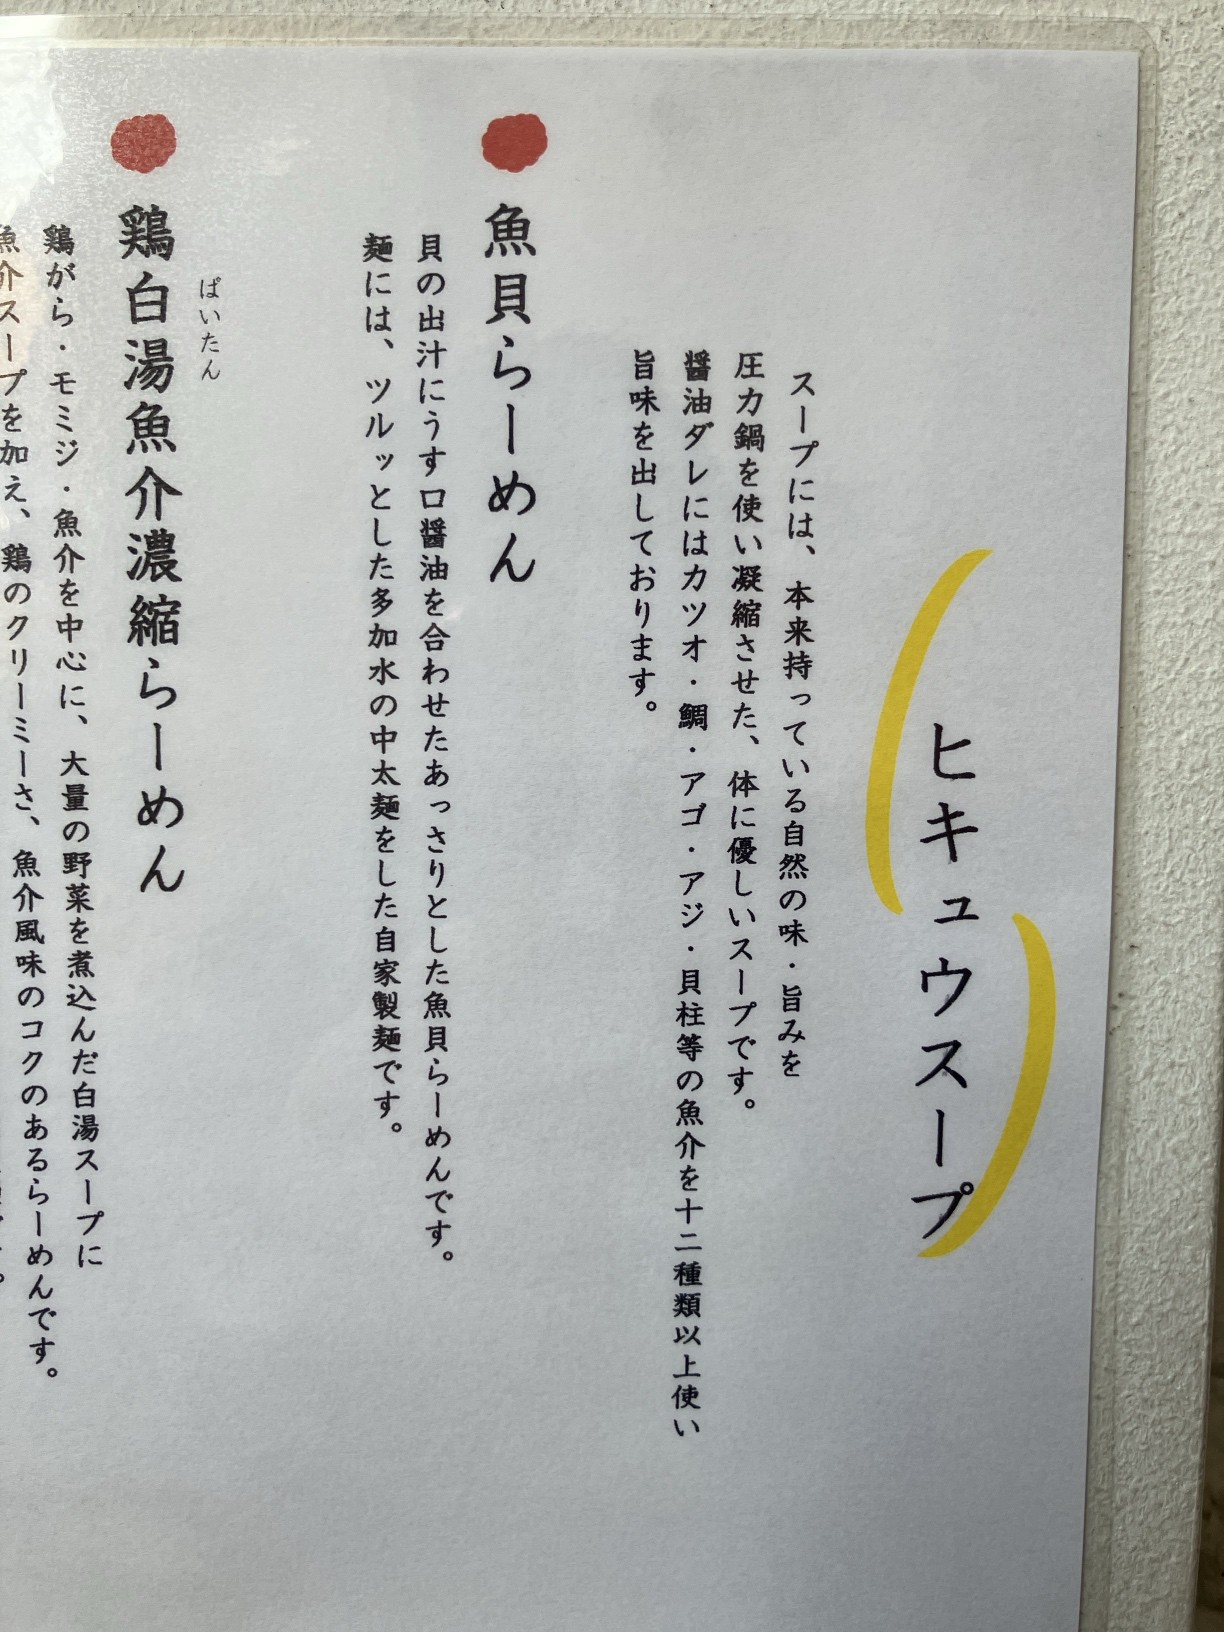 ヒキュウスープ
スープには、本来持っている自然の味・旨みを
圧力鍋を使い凝縮させた、体に優しいスープです。
醤油ダレにはカツオ・鯛・アゴ・アジ・貝柱等の魚介を十二種類以上使い
旨味を出しております。
魚貝らーめん
貝の出汁にうす口醤油を合わせたあっさりとした魚貝らーめんです。
麺には、ツルッとした多加水の中太麺をした自家製麺です。
ぱいたん
鶏白湯魚介濃縮らーめん
鶏がら・モミジ・魚介を中心に、大量の野菜を煮込んだ白湯スープに
魚介スープを加え、鶏のクリーミーさ、魚介風味のコクのあるらーめんです。